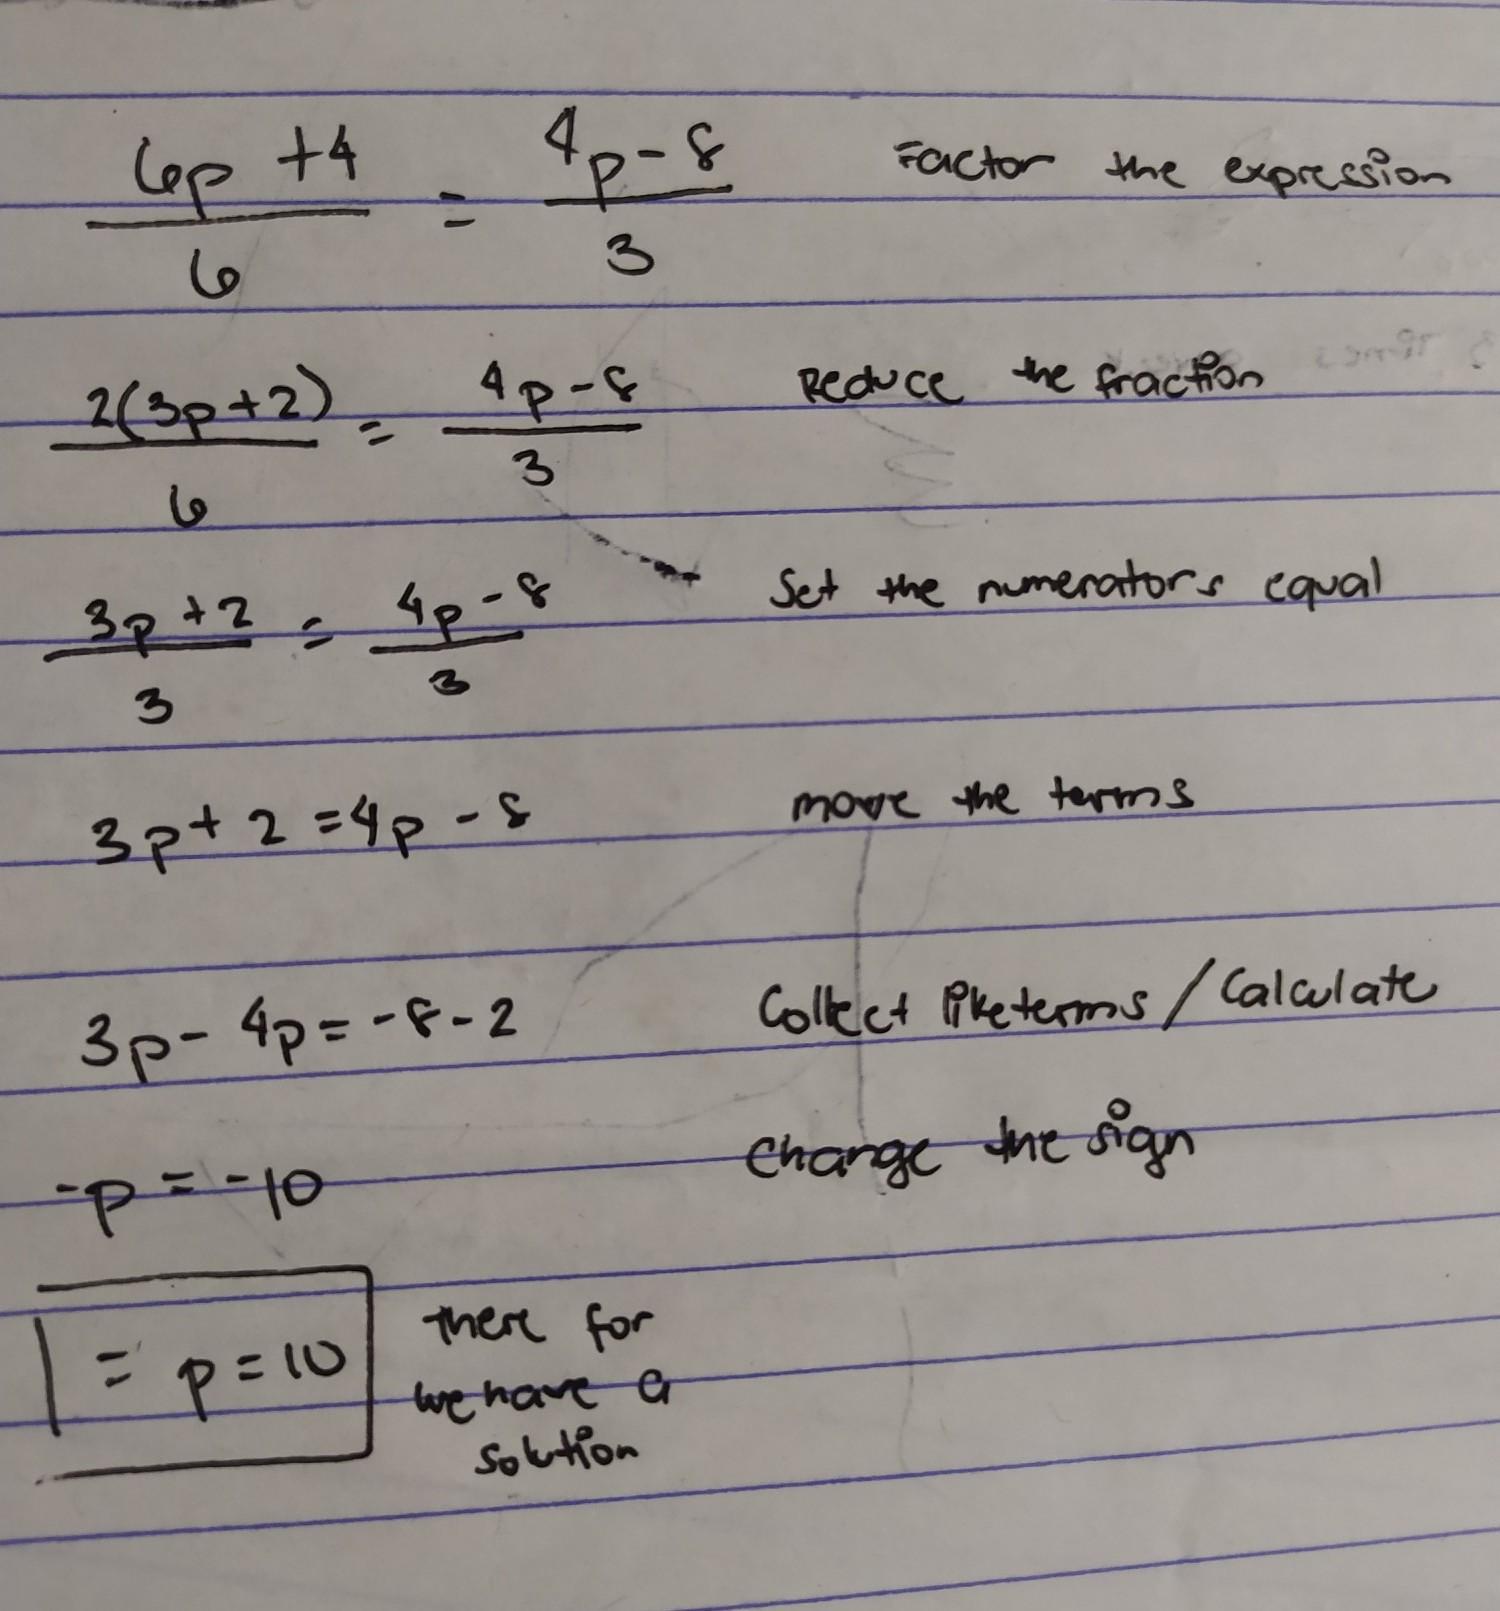 6p + 4 / 6 = 4p - 8 / 3 Factor the expression
2(3p + 2) / 6 = 4p - 8 / 3 Reduce the fraction
3p + 2 / 3 = 4p - 8 / 3 Set the numerators equal
3p + 2 = 4p - 8 move the terms
3p - 4p = -8 - 2 Collect like terms / Calculate
-p = -10 Change the sign
= p = 10 there for
we have a
solution